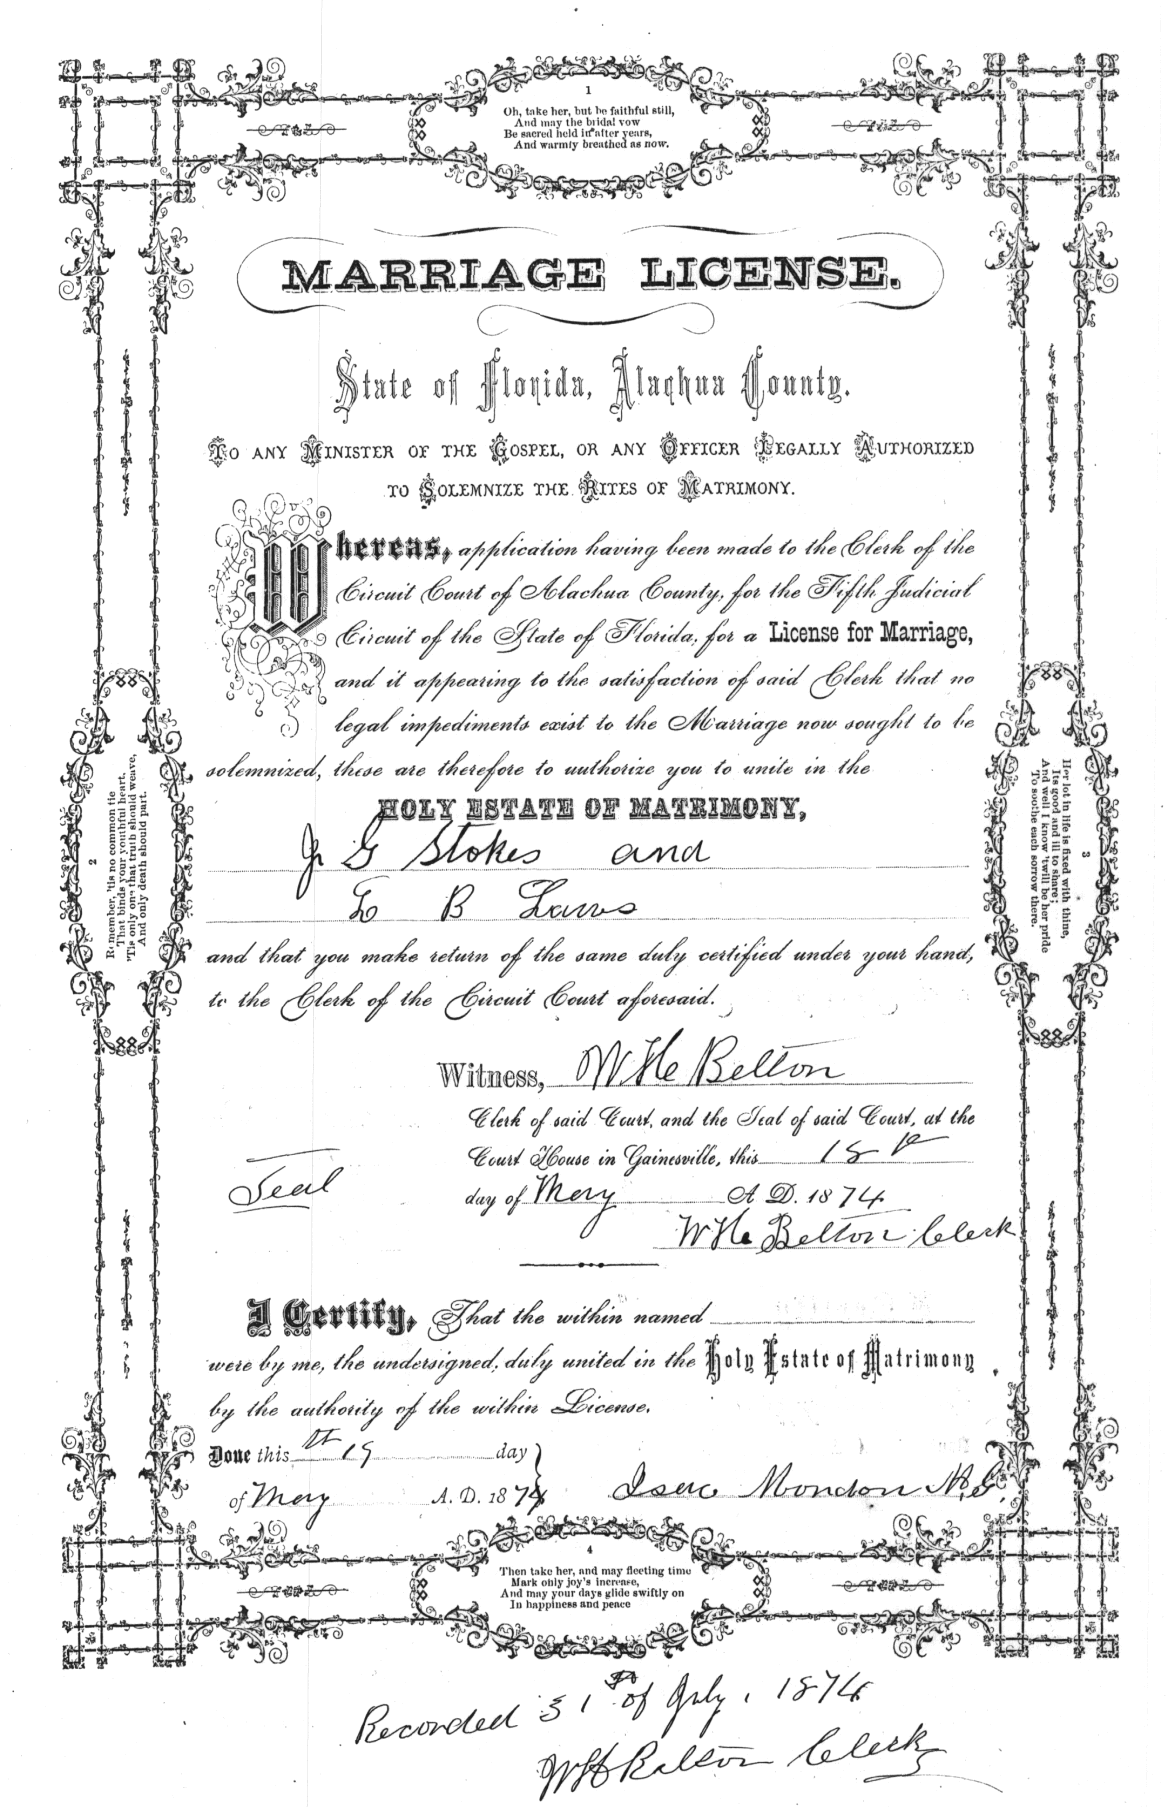 1
Oh, take her, but be faithful still,
And may the bridal vow
Be sacred held in after years,
And warmly breathed as now.
MARRIAGE LICENSE.
State of Florida, Alachua County.
TO ANY MINISTER OF THE GOSPEL, OR ANY OFFICER LEGALLY AUTHORIZED
TO SOLEMNIZE THE RITES OF MATRIMONY.
Whereas, application having been made to the Clerk of the
Circuit Court of Alachua County, for the Fifth Judicial
Circuit of the State of Florida, for a License for Marriage,
and it appearing to the satisfaction of said Clerk that no
legal impediments exist to the Marriage now sought to be
solemnized, these are therefore to authorize you to unite in the
HOLY ESTATE OF MATRIMONY,
J G Stokes and
B
and that you make return of the same duly certified under your hand,
to the Clerk of the Circuit Court aforesaid.
Witness, W He Belton
Clerk of said Court, and the Seal of said Court, at the
Court House in Gainesville, this 18
Seal
day of May A D. 1874
W He Belton Clerk
I Certify, That the within named
were by me, the undersigned, duly united in the Holy Estate of Matrimony
by the authority of the within License.
Done this th 19 day
of May A. D. 1874
2
Remember, 'tis no common tie
That binds your youthful heart.
'Tis only one that truth should weave,
And only death should part.
3
Her lot in life is fixed with thine,
Its good and ill to share;
And well I know 'twill be her pride
To soothe each sorrow there.
4
Then take her, and may fleeting time
Mark only joy's increase,
And may your days glide swiftly on
In happiness and peace
Recorded 31st of July, 1874
WH Belton Clerk